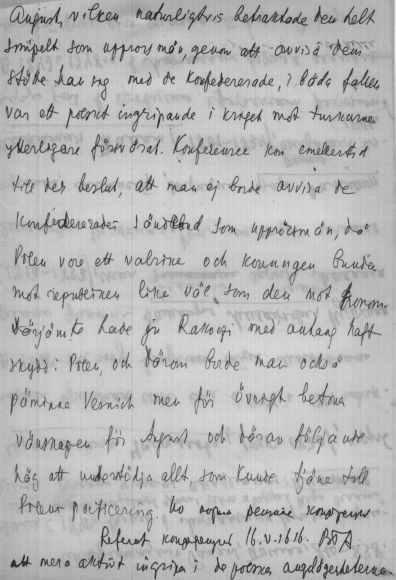 August, vilken naturligtvis betraktade dem helt
simpelt som upprorsmän, genom att avvisa dem
stötte han sig med de konfedererade, i båda fallen
var ett polskt ingripande i kriget mot turkarne
ytterligare försvårat. Konferensen kom emellertid
till det beslut, att man ej borde avvisa de
konfedererades sändebud som upprorsmän, då
Polen vore ett valrike och konungen bunden
mot republiken lika väl som den mot honom.
Därjämte hade ju Rakoczi med anhang haft
skydd i Polen, och därom borde man också
påminna men för övrigt betona
vänskapen för August och därav följande
håg att understödja allt, som kunde tjäna till
Polens pacificering. Но
Referat 16.V.1616. A.
att mera aktivt ingripa i de polska angelägenheterna.